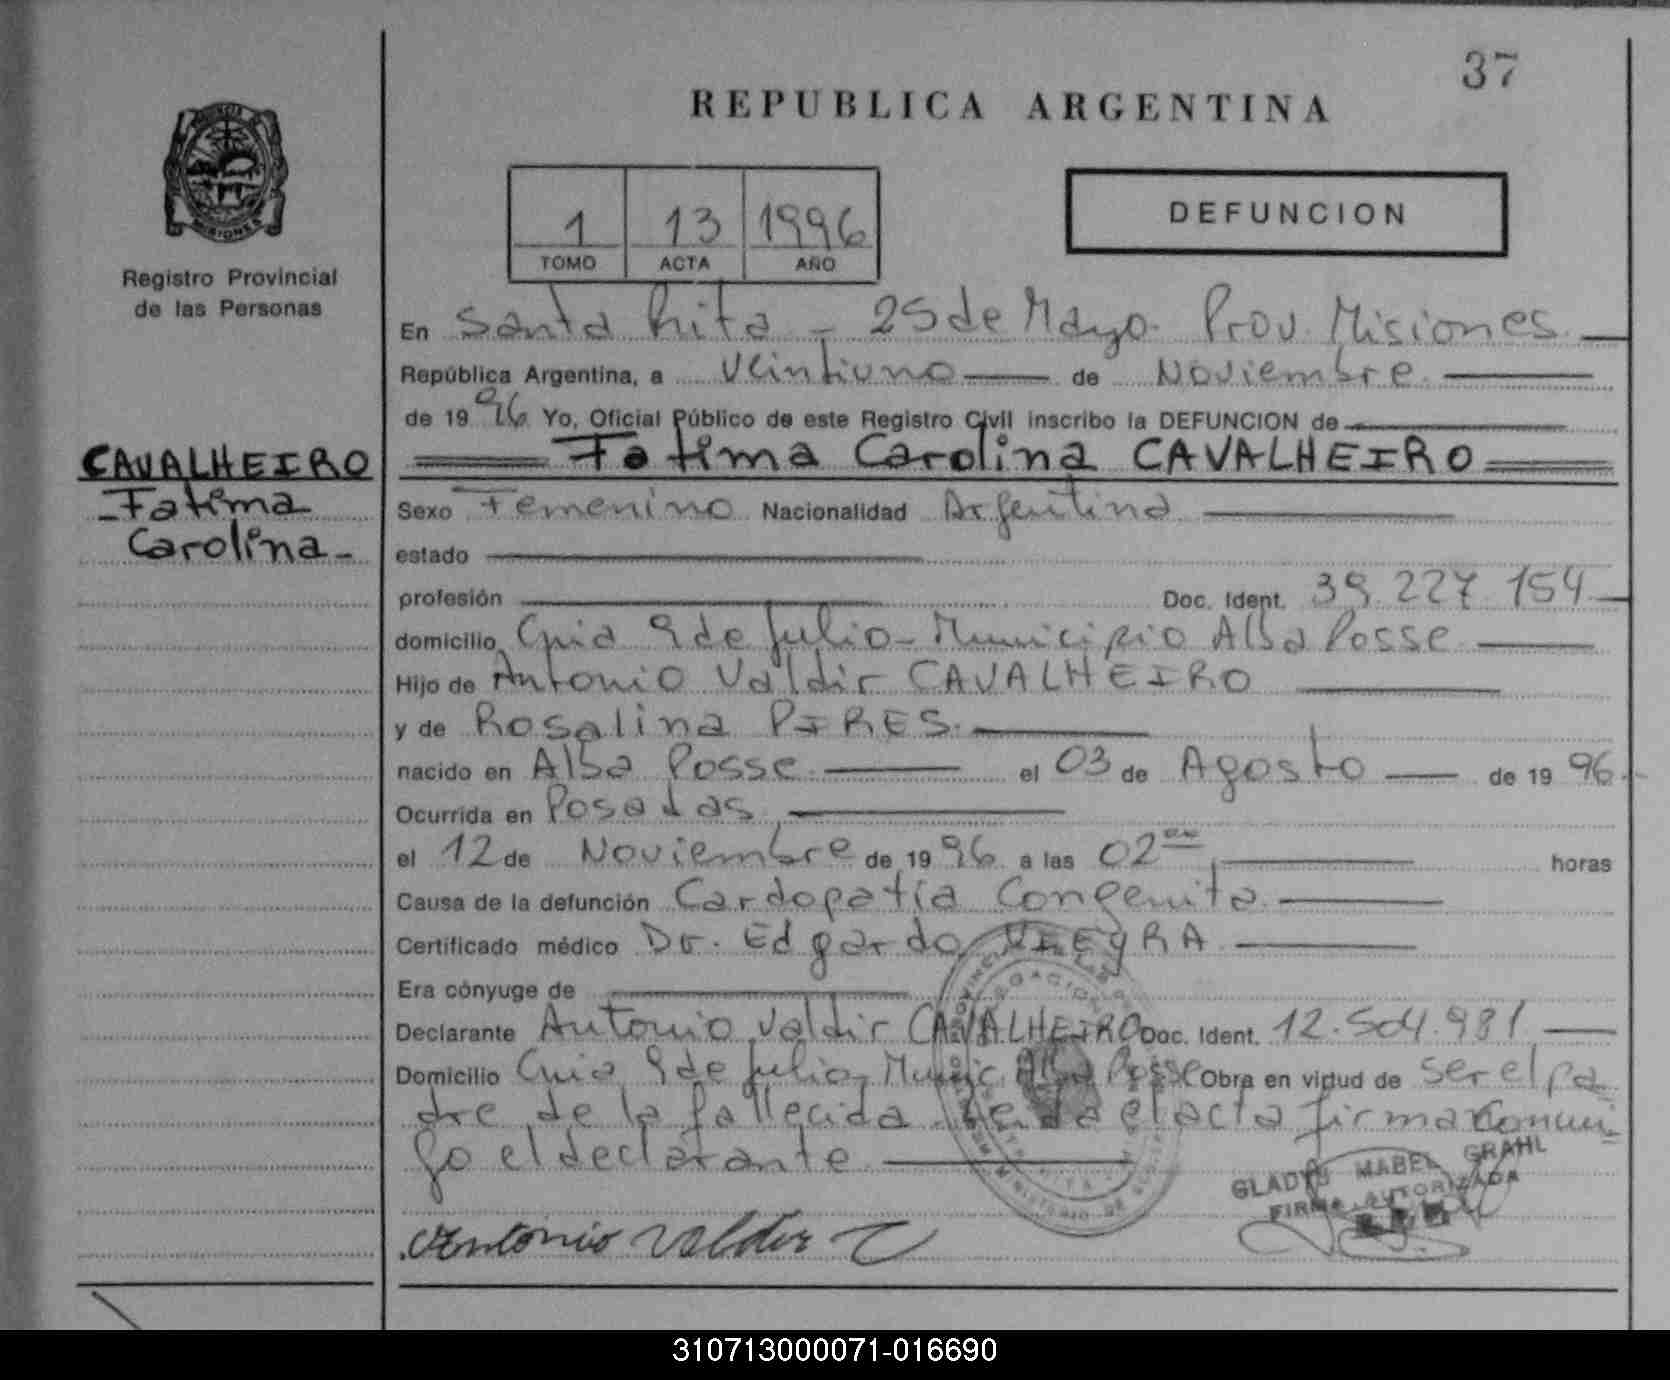 37
REPUBLICA ARGENTINA
PROVINCIA
MISIONES
Registro Provincial
de las Personas
1 13 1996
TOMO ACTA AÑO
DEFUNCION
En Santa Rita - 25 de Mayo. Prov. Misiones
República Argentina, a veintiuno de Noviembre
de 1996 Yo, Oficial Público de este Registro Civil inscribo la DEFUNCION de
Fatima Carolina CAVALHEIRO
CAVALHEIRO
Fatima
Carolina
Sexo Femenino Nacionalidad Argentina
estado
profesión Doc. Ident. 39.227.154
domicilio Cnia 9 de Julio - Municipio Alba Posse
Hijo de Antonio Valdir CAVALHEIRO
y de Rosalina PIRES.
nacido en Alba Posse el 03 de Agosto de 1996.
Ocurrida en Posadas
el 12 de Noviembre de 1996 a las 02 horas
Causa de la defunción Cardopatía Congenita
Certificado médico Dr. Edgardo
Era cónyuge de
Declarante Antonio Valdir CAVALHEIRO Doc. Ident. 12.504.981
Domicilio Cnia 9 de Julio, Munic. Alba Posse Obra en virtud de ser el pa
dre de la fallecida. Leida el acta firma conmi
go el declarante
Antonio Valdir C
GLADYS MABEL GRAHL
FIRMA AUTORIZADA
310713000071-016690